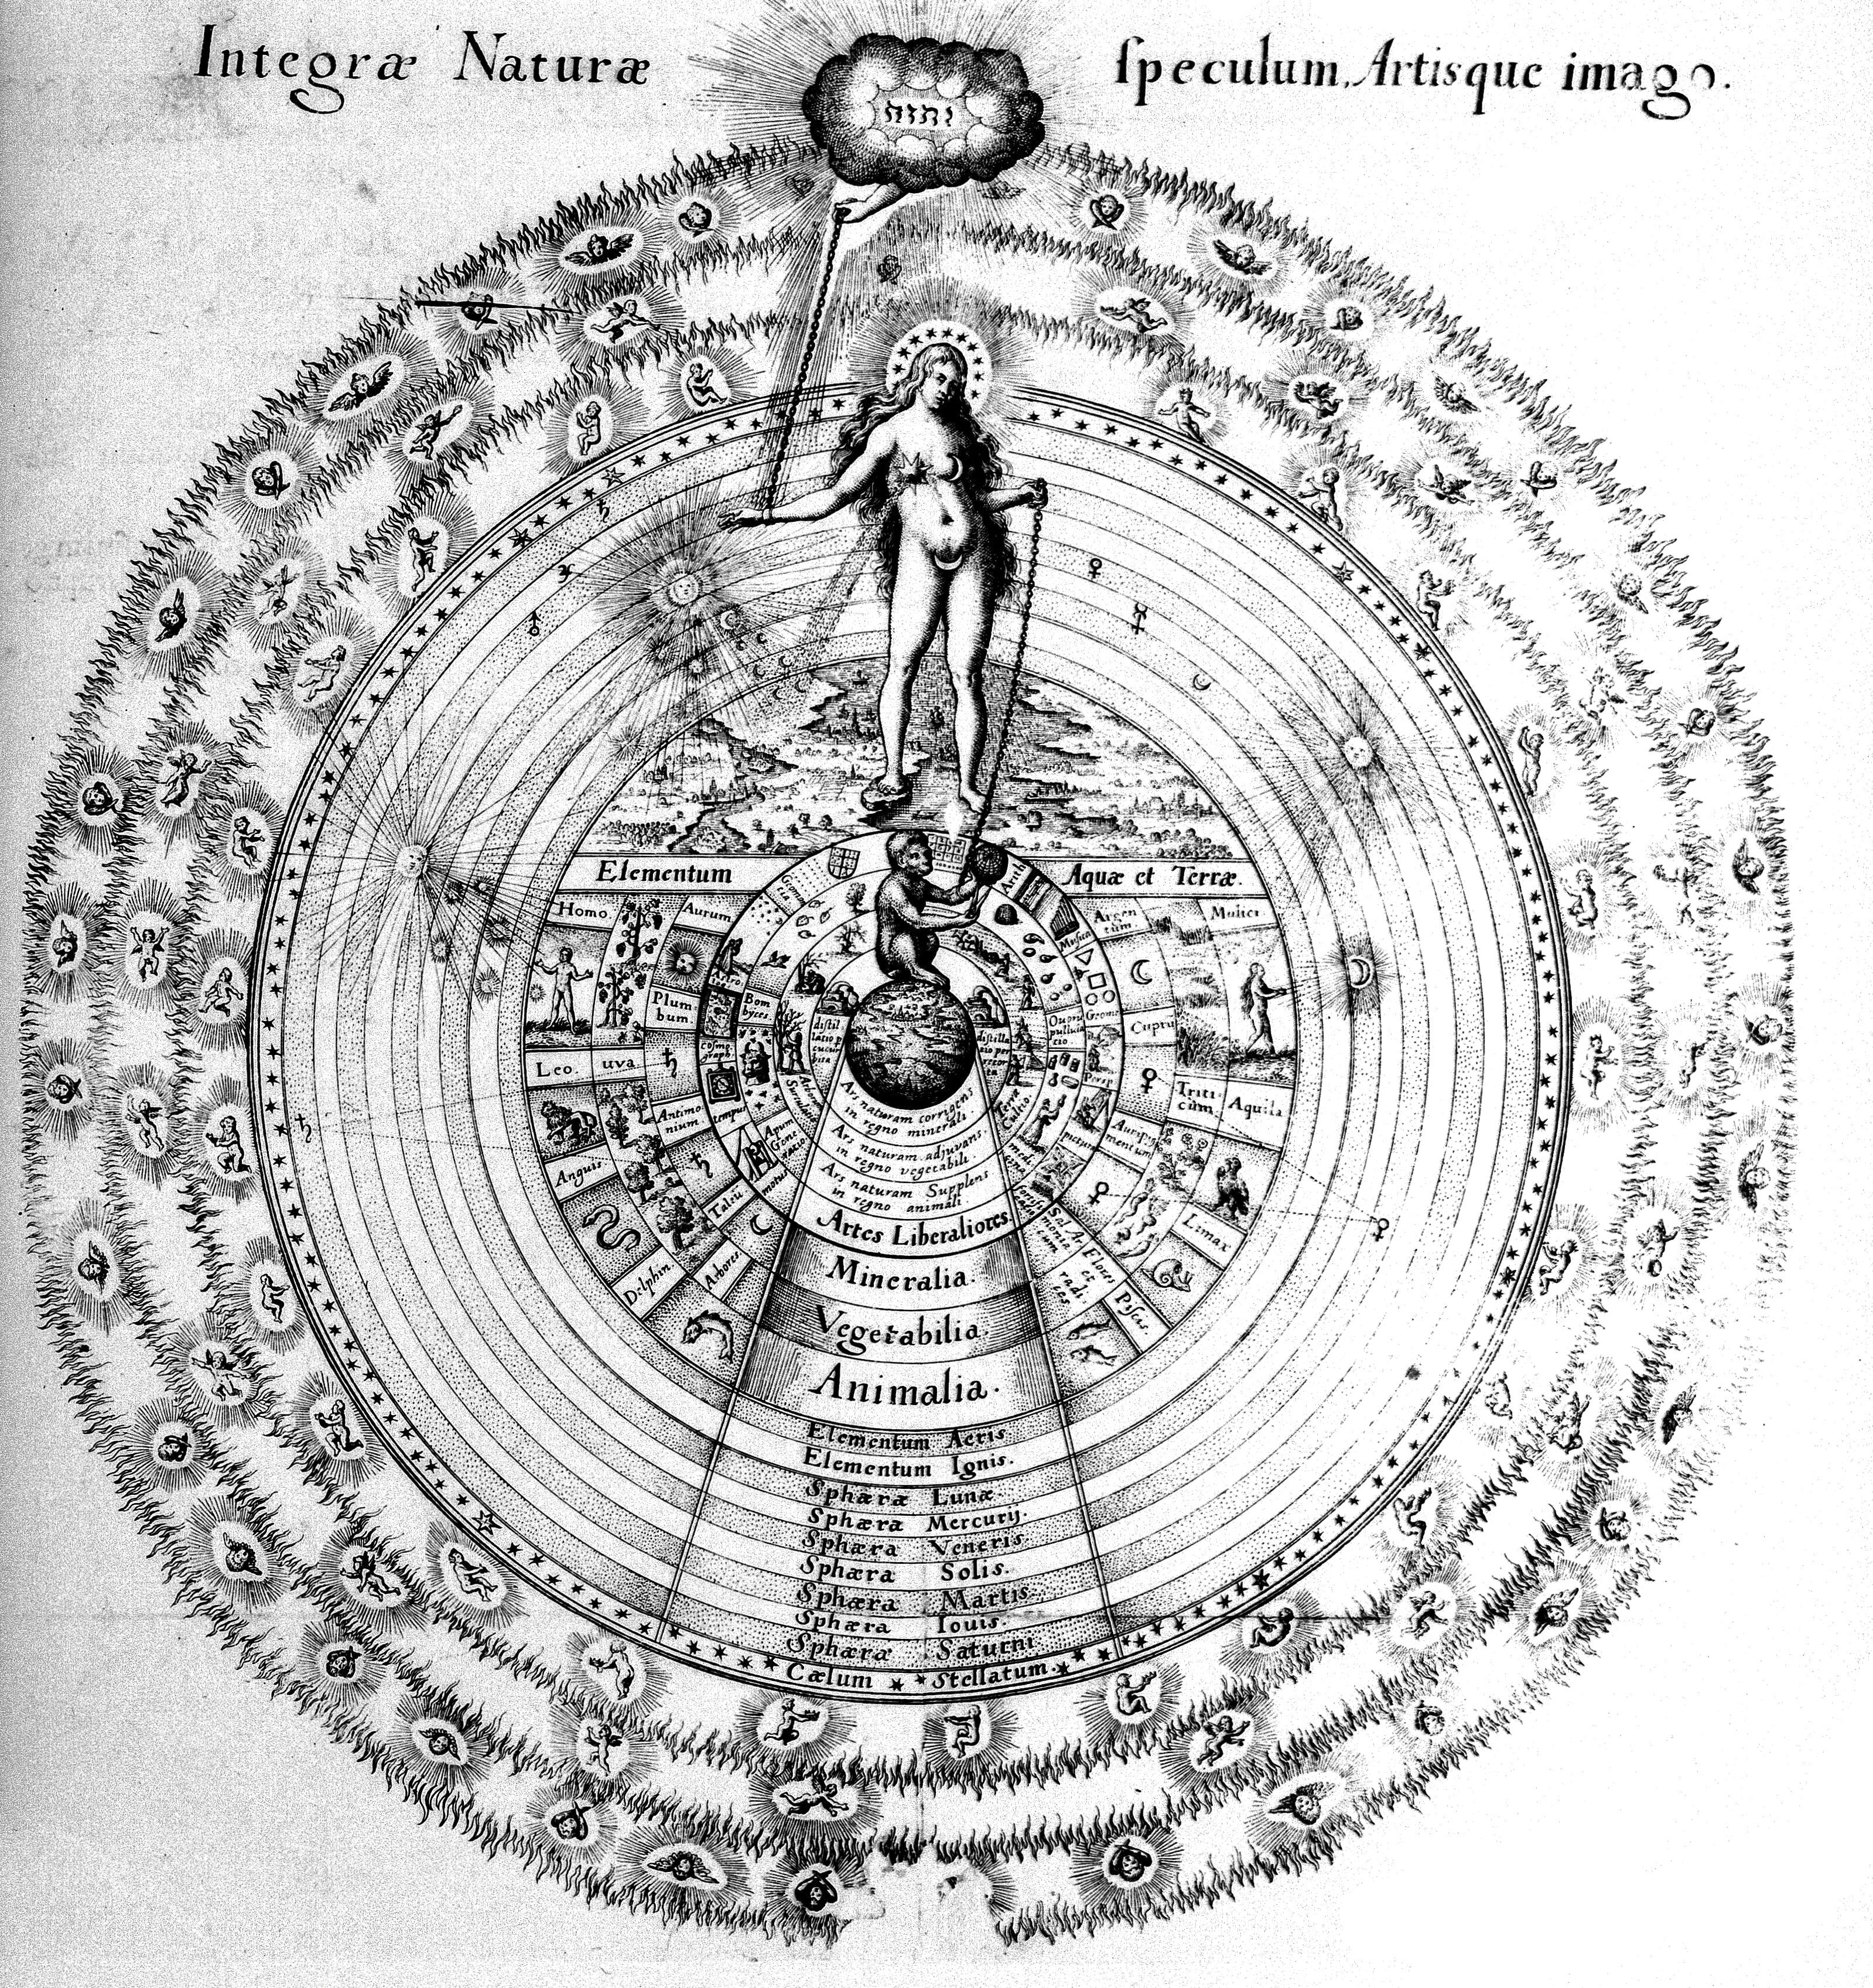 Integræ Naturæ ſpeculum, Artisque imago.
יהוה
Elementum Aquæ et Terræ.
Homo
Aurum
Argen
tum
Mulier
Plum
bum.
Bom
byces.
Cupru
Leo.
uva
distil
latio p
cucur
bita
distilla
tio per
retor
Triti
cum
Aquila
Antimo
nium.
tempus
Apum
Gene
ratio
Auripig
mentum
pictura
Anguis
Talcu
motus
Limax
Delphin.
Arbores
Sal Ar
moniacum
Flores
et
radi
ces
Pisces.
Ars naturam corrigens
in regno minerali
Ars naturam adjuvans
in regno vegetabili
Ars naturam Supplens
in regno animali
Artes Liberaliores.
Mineralia.
Vegetabilia.
Animalia.
Elementum Aeris
Elementum Ignis.
Sphæra Lunæ
Sphæra Mercurij.
Sphæra Veneris
Sphæra Solis.
Sphæra Martis.
Sphæra Iouis.
Sphæra Saturni
Cælum Stellatum.